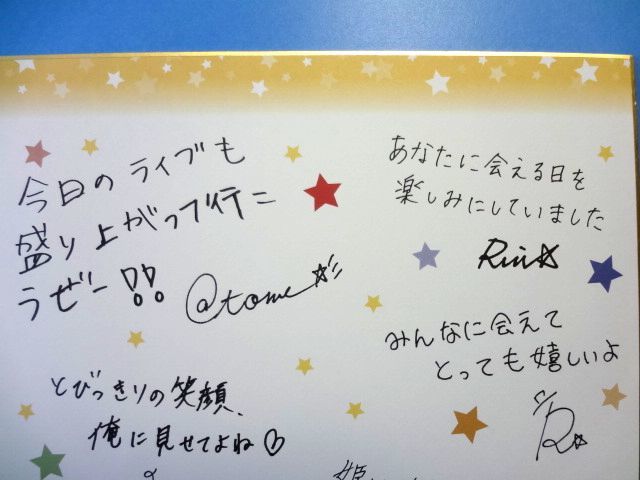 今日のライブも
盛り上がって行こ
うぜー!!
@tome
あなたに会える日を
楽しみにしていました
Rin
みんなに会えて
とっても嬉しいよ
R
とびっきりの笑顔、
俺に見せてよね♡